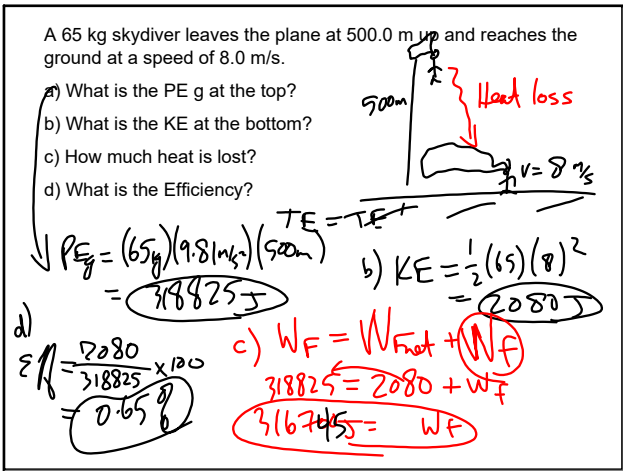 A 65 kg skydiver leaves the plane at 500.0 m up and reaches the
ground at a speed of 8.0 m/s.
a) What is the PE g at the top?
b) What is the KE at the bottom?
c) How much heat is lost?
d) What is the Efficiency?
500m
Heat loss
v = 8 m/s
TE = TE'
PEg = (65kg)(9.81m/s²)(500m)
= 318825 J
b) KE = 1/2 (65)(8)²
= 2080 J
d)
Eff = 2080/318825 × 100
= 0.65%
c) WF = WFnet + Wf
318825 = 2080 + Wf
316745J = Wf